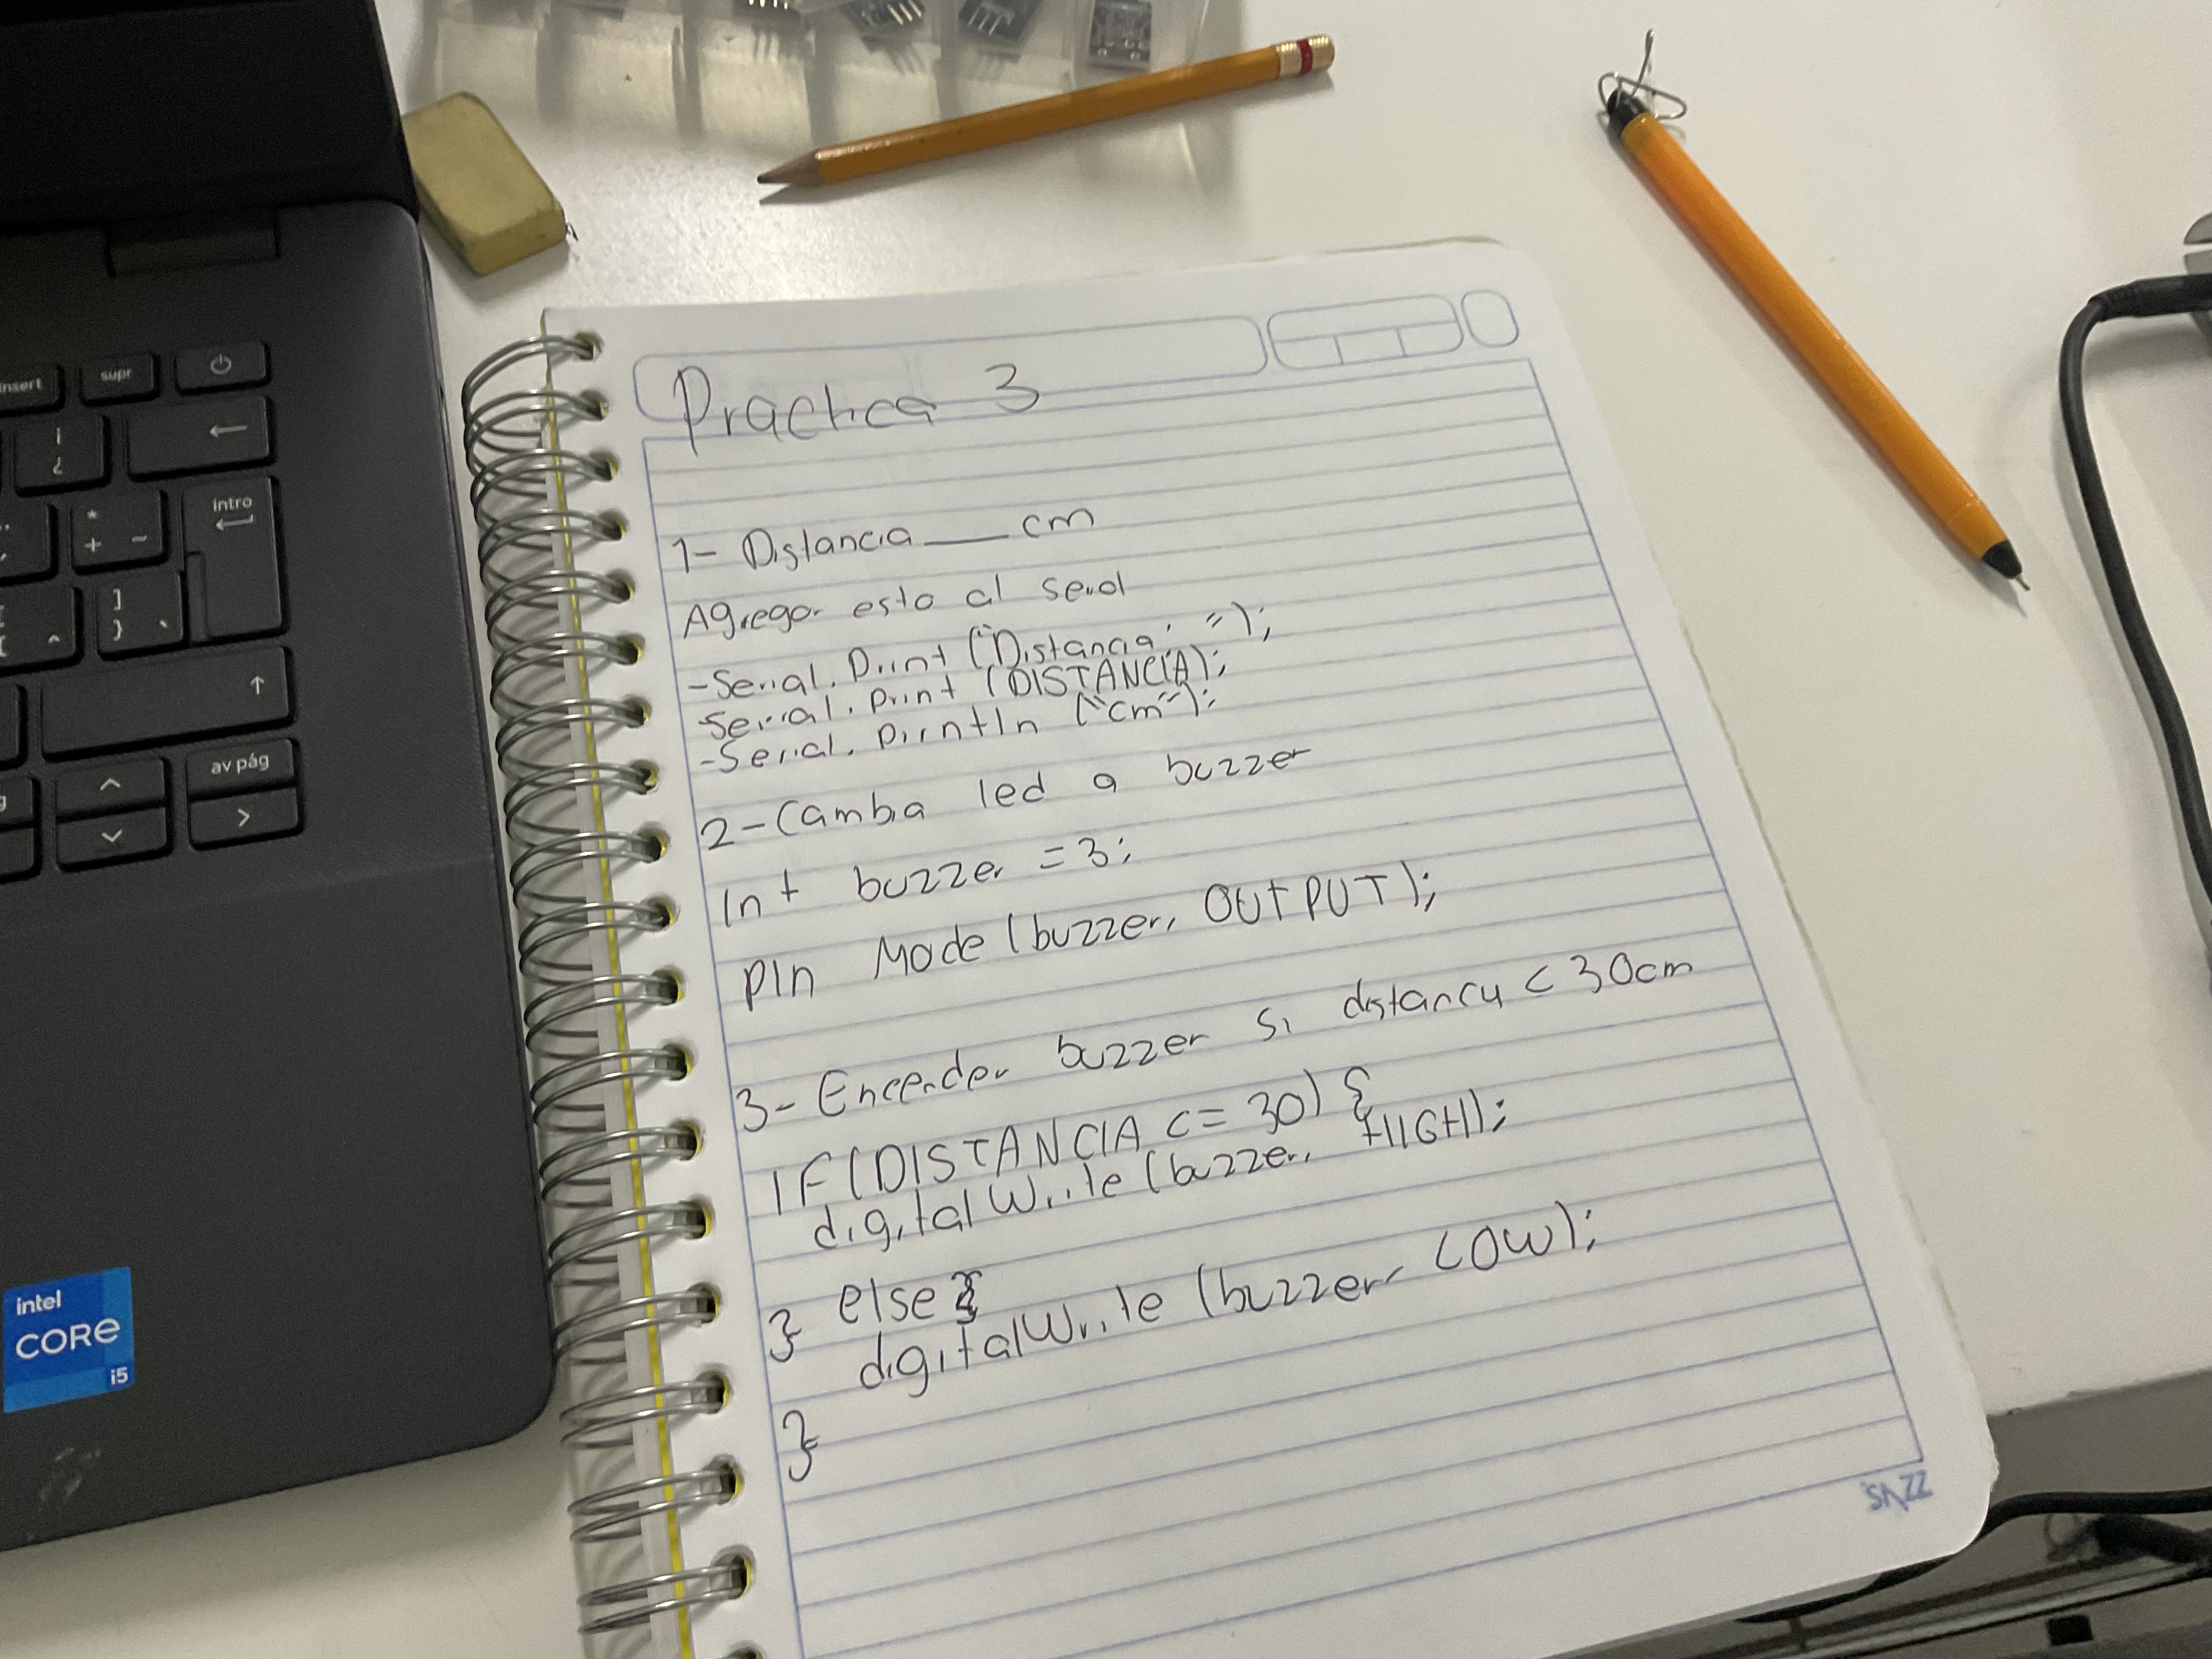 insert
supr
intro
av pág
intel
CORE
i5
Practica 3
1- Distancia ___ cm
Agregar esto al serial
-Serial. Print ("Distancia: ");
-Serial. Print (DISTANCIA);
-Serial. Println ("cm");
2- Cambia led a buzzer
Int buzzer = 3;
PIn Mode (buzzer, OUTPUT);
3- Encender buzzer si distancia < 30cm
IF (DISTANCIA <= 30) {
digitalWrite (buzzer, HIGH);
} else {
digitalWrite (buzzer, LOW);
}